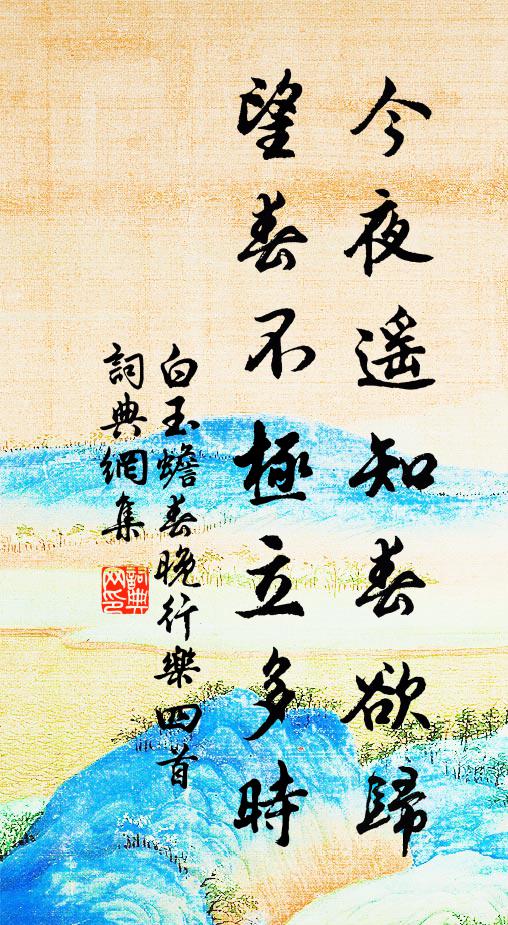 今夜遥知春欲歸
望春不極立多時
白玉蟾春晚行樂四首
詞典網集
詞典网印